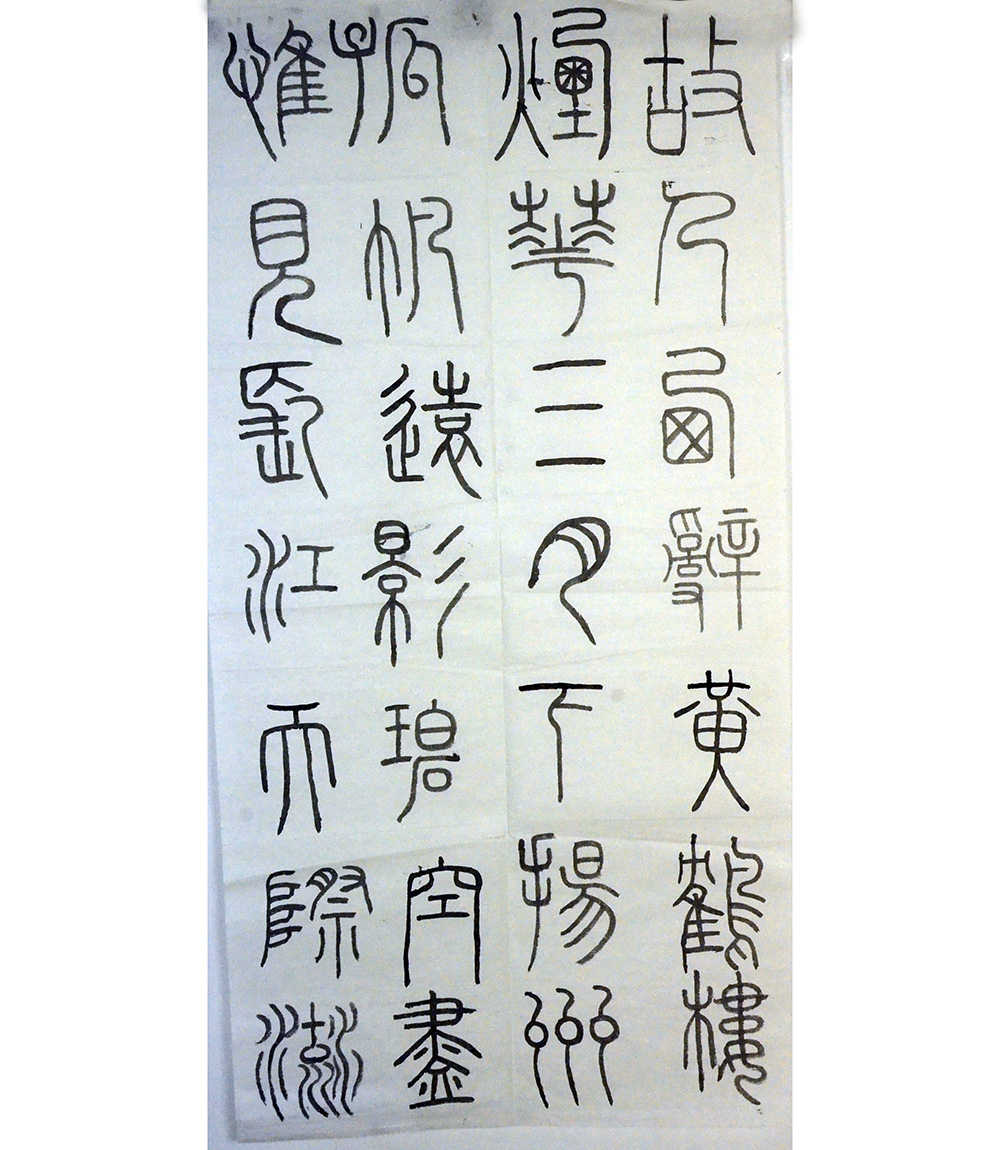 故人西辭黃鶴樓
煙華三月下揚州
孤帆遠影碧空盡
惟見長江天際流